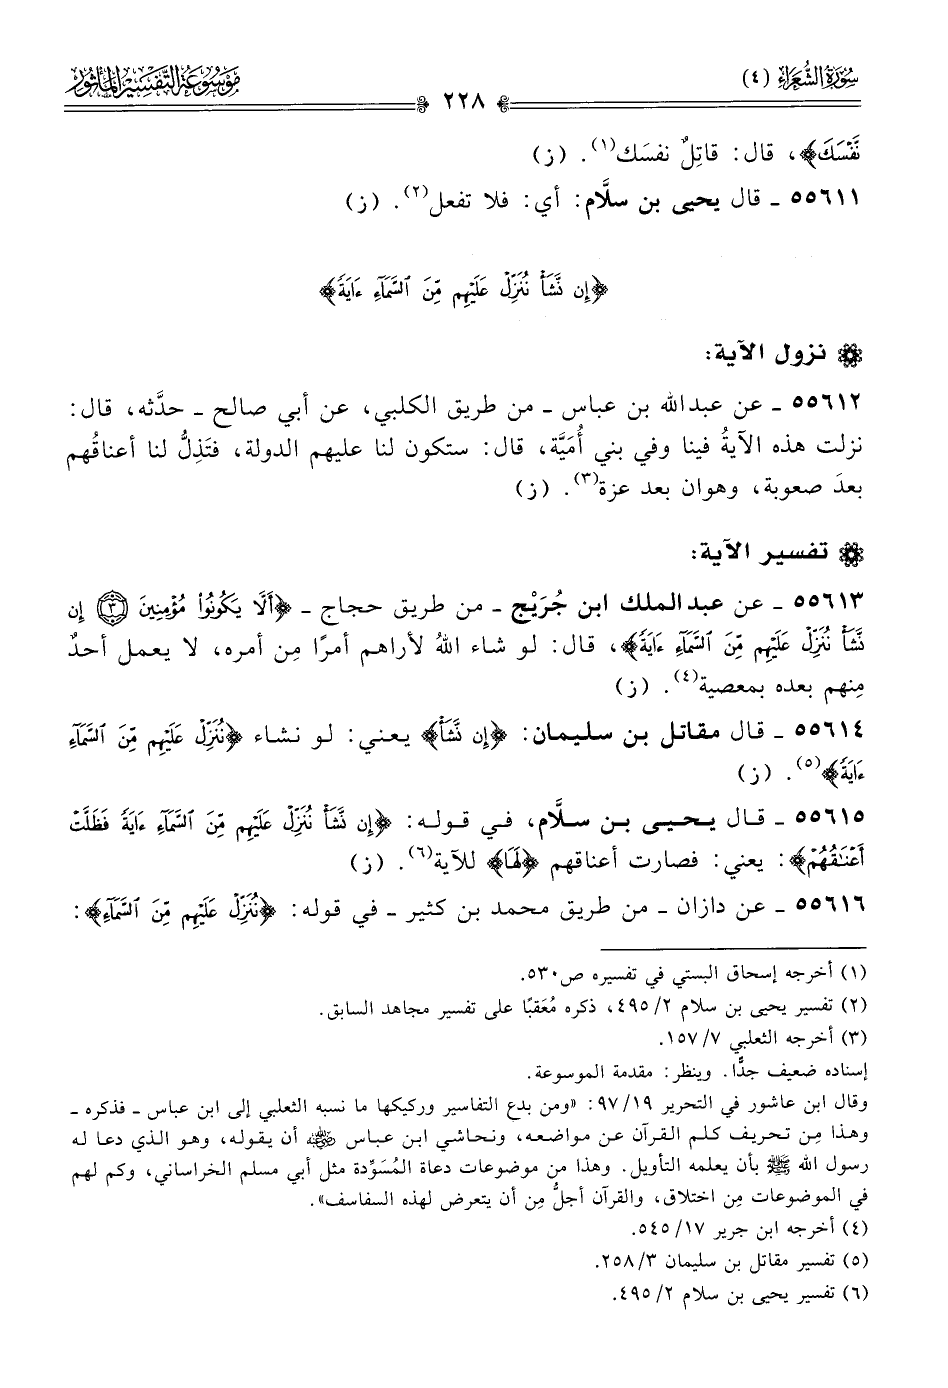 سُورَةُ الشُّعَرَاءِ (٤)
٢٢٨
مَوْسُوعَةُ التَّفْسِيرِ المَأْثُورِ
نَّفْسَكَ﴾، قال: قاتِلٌ نفسَك(١). (ز)
٥٥٦١١ ـ قال يحيى بن سلَّام: أي: فلا تفعل(٢). (ز)
﴿إِن نَّشَأْ نُنَزِّلْ عَلَيْهِم مِّنَ ٱلسَّمَآءِ ءَايَةً﴾
نزول الآية:
٥٥٦١٢ ـ عن عبدالله بن عباس ـ من طريق الكلبي، عن أبي صالح ـ حدَّثه، قال:
نزلت هذه الآيةُ فينا وفي بني أُمَيَّة، قال: ستكون لنا عليهم الدولة، فتَذِلُّ لنا أعناقُهم
بعدَ صعوبة، وهوان بعد عزة(٣). (ز)
تفسير الآية:
٥٥٦١٣ ـ عن عبدالملك ابن جُرَيْج ـ من طريق حجاج ـ ﴿أَلَّا يَكُونُوا۟ مُؤْمِنِينَ ٣ إِن
نَّشَأْ نُنَزِّلْ عَلَيْهِم مِّنَ ٱلسَّمَآءِ ءَايَةً﴾، قال: لو شاء اللهُ لأراهم أمرًا مِن أمره، لا يعمل أحدٌ
مِنهم بعده بمعصية(٤). (ز)
٥٥٦١٤ ـ قال مقاتل بن سليمان: ﴿إِن نَّشَأْ﴾ يعني: لو نشاء ﴿نُنَزِّلْ عَلَيْهِم مِّنَ ٱلسَّمَآءِ
ءَايَةً﴾(٥). (ز)
٥٥٦١٥ ـ قال يحيى بن سلَّام، في قوله: ﴿إِن نَّشَأْ نُنَزِّلْ عَلَيْهِم مِّنَ ٱلسَّمَآءِ ءَايَةً فَظَلَّتْ
أَعْنَٰقُهُمْ﴾: يعني: فصارت أعناقهم ﴿لَهَا﴾ للآية(٦). (ز)
٥٥٦١٦ ـ عن دازان ـ من طريق محمد بن كثير ـ في قوله: ﴿نُنَزِّلْ عَلَيْهِم مِّنَ ٱلسَّمَآءِ﴾:
(١) أخرجه إسحاق البستي في تفسيره ص٥٣٠.
(٢) تفسير يحيى بن سلام ٢/ ٤٩٥، ذكره مُعَقبًا على تفسير مجاهد السابق.
(٣) أخرجه الثعلبي ٧/ ١٥٧.
إسناده ضعيف جدًّا. وينظر: مقدمة الموسوعة.
وقال ابن عاشور في التحرير ١٩/ ٩٧: «ومن بدع التفاسير وركيكها ما نسبه الثعلبي إلى ابن عباس ـ فذكره ـ
وهذا مِن تحريف كلم القرآن عن مواضعه، ونحاشي ابن عباس ﵁ أن يقوله، وهو الذي دعا له
رسول الله ﷺ بأن يعلمه التأويل. وهذا من موضوعات دعاة المُسَوِّدة مثل أبي مسلم الخراساني، وكم لهم
في الموضوعات مِن اختلاق، والقرآن أجلُّ مِن أن يتعرض لهذه السفاسف».
(٤) أخرجه ابن جرير ١٧/ ٥٤٥.
(٥) تفسير مقاتل بن سليمان ٣/ ٢٥٨.
(٦) تفسير يحيى بن سلام ٢/ ٤٩٥.